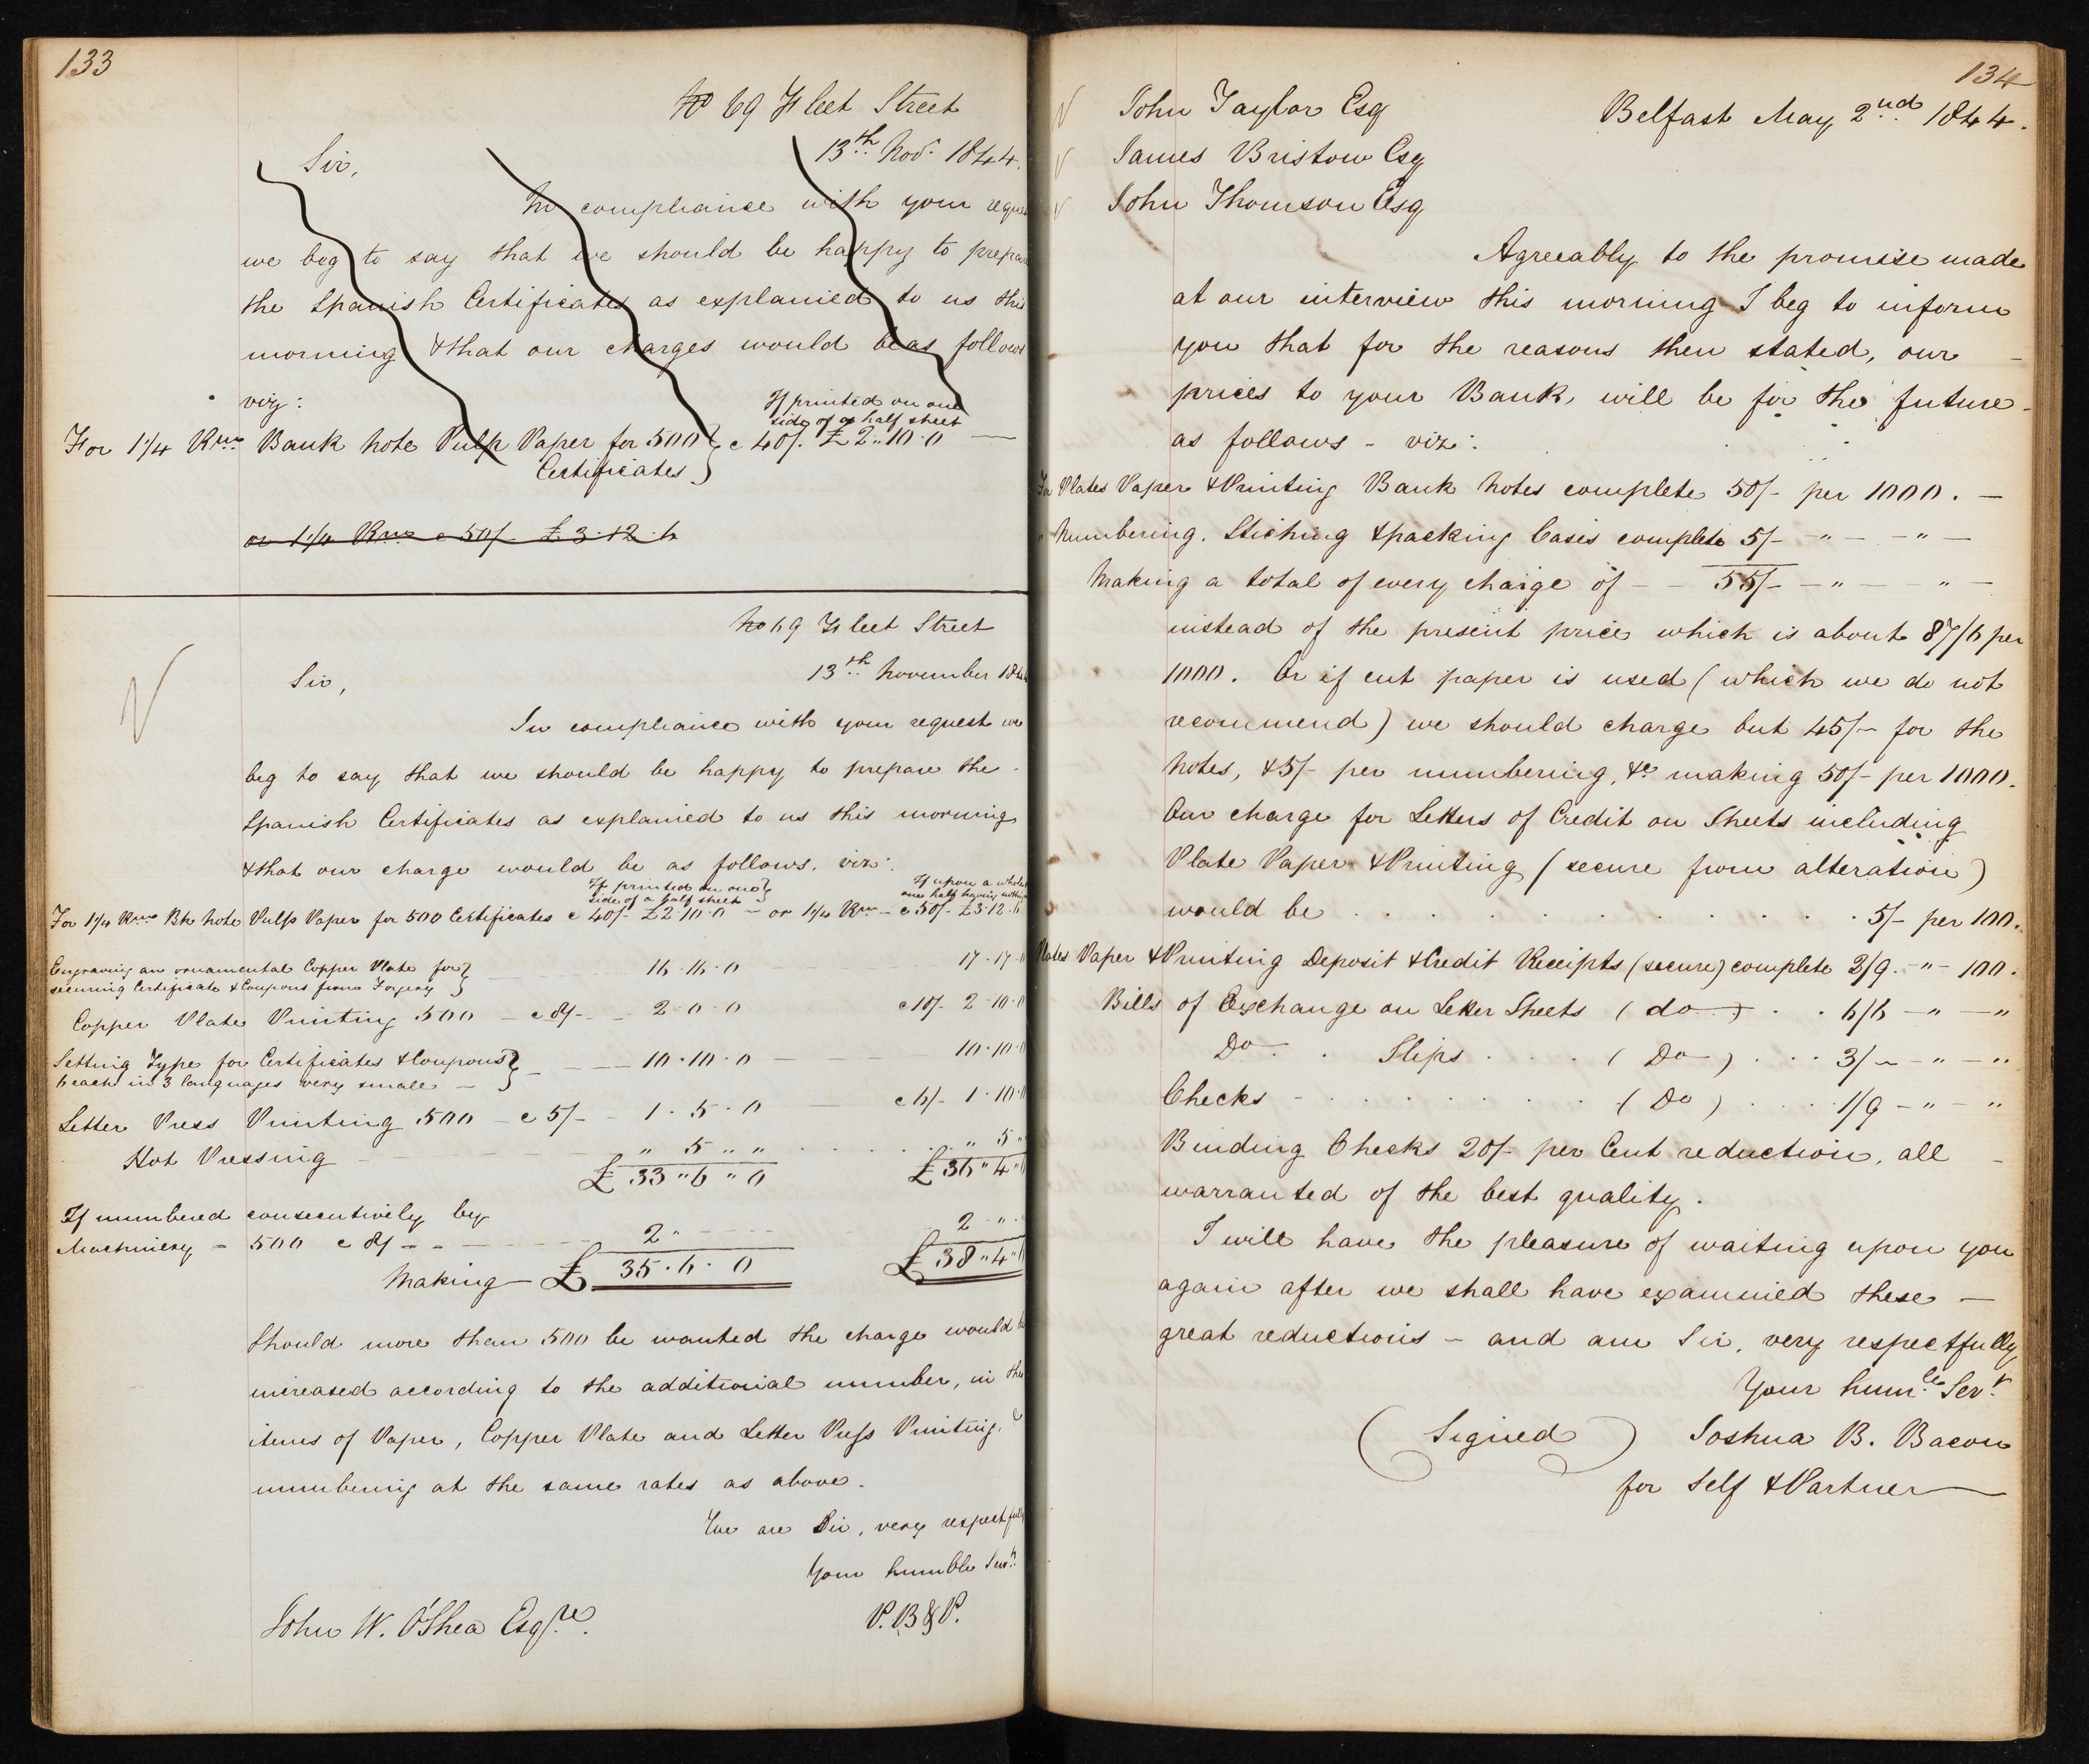 133
No 69 Fleet Street
13th Novr. 1844.
Sir,
In compliance with your reques
we beg to say that we should be happy to prepare
the Spanish Certificates as explained to us this
morning & that our charges would be as follows
viz:
If printed on one
side of a half sheet
For 1 1/4 Rms Bank Note Pulp Paper for 500 } c 40/. £2..10.0 —
Certificates
or 1 1/4 Rms c 50/- £3.12.6
No 69 Fleet Street
13th November 184
Sir,
In compliance with your request we
beg to say that we should be happy to prepare the
Spanish Certificates as explained to us this morning
& that our charge would be as follows, viz:
If printed on one } If upon a whole
side of a half sheet one half having nothing
For 1 1/4 Rms Bk Note Pulp Paper for 500 Certificates c 40/- £2.10.0 — or 1 1/4 Rm — c 50/- £3.12.6
Engraving an ornamental Copper Plate for }
securing Certificate & Coupons from Forgery 16.16.0 17.17.0
Copper Plate Printing 500 — c 8/- — 2.0.0 c 10/- 2.10.0
Setting Type for Certificates & Coupons }
6 each in 3 languages very small — 10.10.0 — 10.10.0
Letter Press Printing 500 — c 5/- — 1.5.0 — c 6/- 1.10.0
Hot Pressing — " 5 " " " 5 "
£33"6"0 £36"4"
If numbered consecutively by
Machinery — 500 c 8/- — 2" 2 "
Making — £35.6.0 £38"4"
Should more than 500 be wanted the charge would be
increased according to the additional number, in the
items of Paper, Copper Plate and Letter Press Printing, &
numbering at the same rates as above.
We are Sir, very respectfully
Your humble Servts.
P. B & P.
John W. O'Shea Esqre.
134
Belfast May 2nd 1844.
John Taylor Esq
James Bristow Esq
John Thomson Esq
Agreeably to the promise made
at our interview this morning I beg to inform
you that for the reasons then stated, our —
prices to your Bank, will be for the future —
as follows - viz:
For Plates Paper & Printing Bank Notes complete 50/- per 1000. —
" Numbering, Stiching & packing Cases complete 5/- — " — — " —
Making a total of every charge of — — 55/- — " — " —
instead of the present price which is about 87/6 per
1000. Or if cut paper is used (which we do not
recommend) we should charge but 45/- for the
Notes, & 5/- per numbering, &c making 50/- per 1000.
Our charge for Letters of Credit on Sheets including
Plate Paper & Printing (secure from alteration)
would be . . . . . . . . . . . . 5/- per 100.
Plates Paper & Printing Deposit & Credit Receipts (secure) complete 2/9. — " — 100.
Bills of Exchange on Letter Sheets (do) . . 6/6 — " — "
Do . . Slips . . . . (Do) . . . 3/- — " — "
Checks - . . . . . . . (Do) . . . . 1/9 — " — "
Binding Checks 20/- per Cent reduction, all —
warranted of the best quality.
I will have the pleasure of waiting upon you
again after we shall have examined these —
great reductions — and am Sir, very respectfully
Your humle Servt.
(Signed) Joshua B. Bacon
for Self & Partner